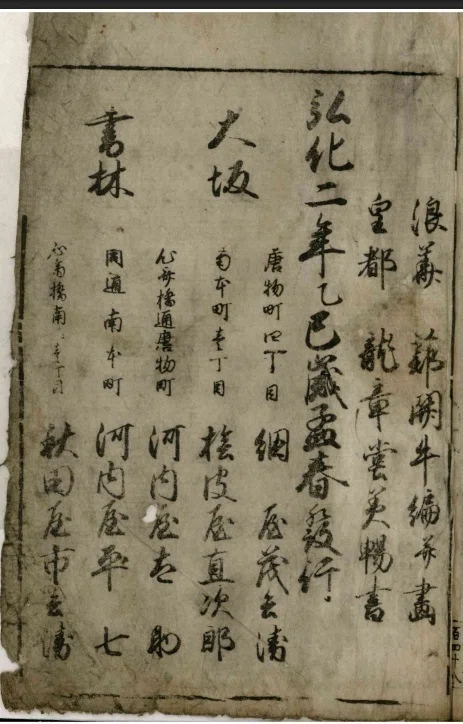 浪華　蔀關牛編并畫
皇都　龍章堂英暢書
弘化二年乙巳歳孟春發行
大坂
書林
唐物町四丁目　綱屋茂兵衛
南本町壱丁目　桧皮屋直次郎
心斎橋通唐物町　河内屋太助
同通南本町　河内屋平七
心斎橋南壱丁目　秋田屋市兵衛